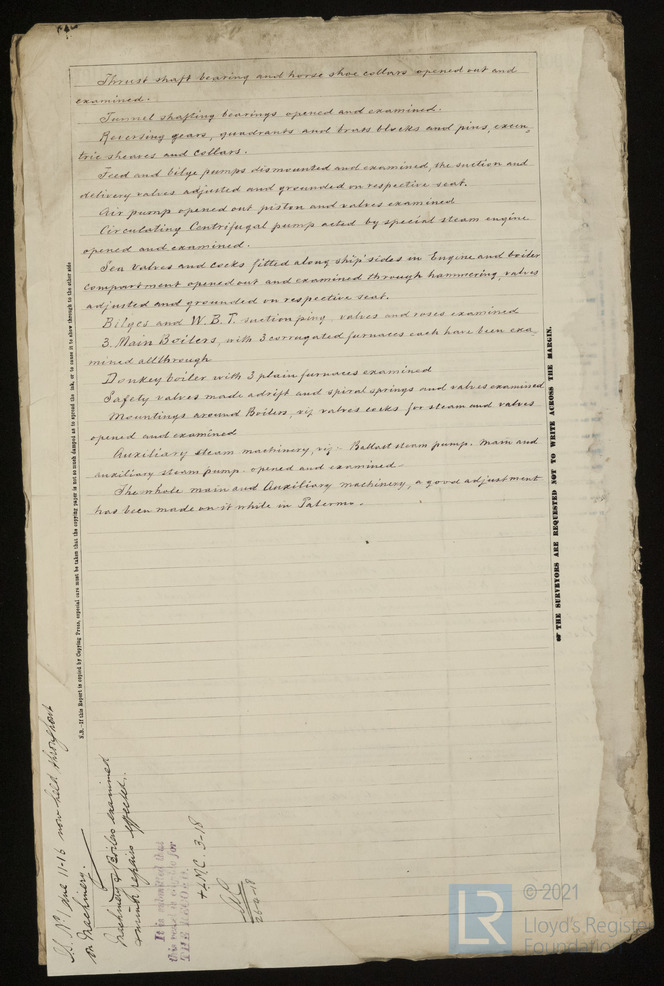 Thrust shaft bearing and horse shoe collars opened out and
examined.
Tunnel shafting bearings opened and examined.
Reversing gears, quadrants and brass blocks and pins, excen,
tric sheaves and collars.
Feed and bilge pumps dismounted and examined, the suction and
delivery valves adjusted and grounded on respective seat.
Air pump opened out piston and valves examined
Circulating Centrifugal pump acted by special steam engine
opened and examined.
Sea valves and cocks fitted along ship' sides in Engine and boiler
compartment opened out and examined through hammering, valves
adjusted and grounded on respective seat.
Bilges and W.B.T. suction piny, valves and roses examined
3. Main Boilers, with 3 corrugated furnaces each have been exa,
mined allthrough
Donkey boiler with 3 plain furnaces examined
Safety valves made adrift and spiral springs and valves examined
Mountings around Boilers, viz valves cocks for steam and valves
opened and examined
Auxiliary steam machinery, viz - Ballast steam pump. Main and
auxiliary steam pump. opened and examined -
The whole main and Auxiliary machinery, a good adjustment
has been made on it while in Palermo.
N.B.-If this Report is copied by Copying Press, especial care must be taken that the copying paper is not so much damped as to spread the ink, or to cause it to show through to the other side
THE SURVEYORS ARE REQUESTED NOT TO WRITE ACROSS THE MARGIN.
due 11-16 now held throughout
on Machinery.
Machinery & Boilers examined
minor repairs effected.
It is submitted that
this vessel is eligible for
THE RECORD
+LMC 3-18
LR
© 2021
Lloyd's Register
Foundation